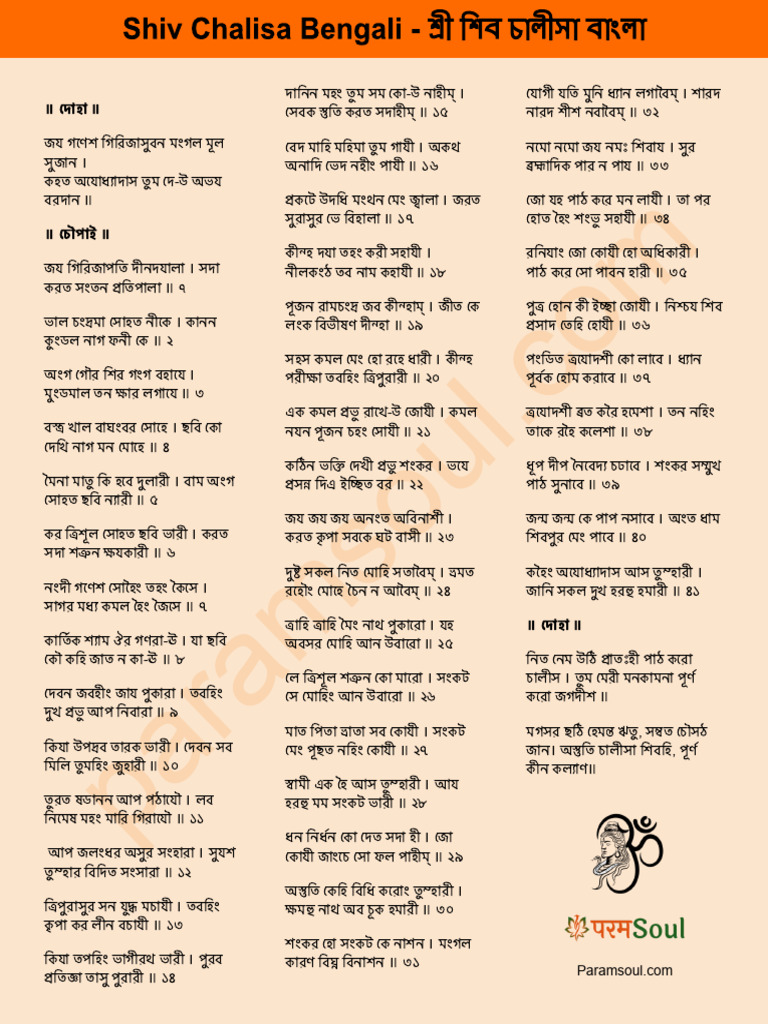 Shiv Chalisa Bengali - শ্রী শিব চালীসা বাংলা
॥ দোহা ॥
জয গণেশ গিরিজাসুবন মংগল মূল
সুজান ।
কহত অযোধ্যাদাস তুম দে-উ অভয
বরদান ॥
॥ চৌপাই ॥
জয গিরিজাপতি দীনদযালা । সদা
করত সংতন প্রতিপালা ॥ ৭
ভাল চংদ্রমা সোহত নীকে । কানন
কুংডল নাগ ফনী কে ॥ ২
অংগ গৌর শির গংগ বহাযে ।
মুংডমাল তন ক্ষার লগাযে ॥ ৩
বস্ত্র খাল বাঘংবর সোহে । ছবি কো
দেখি নাগ মন মোহে ॥ ৪
মৈনা মাতু কি হবে দুলারী । বাম অংগ
সোহত ছবি ন্যারী ॥ ৫
কর ত্রিশূল সোহত ছবি ভারী । করত
সদা শত্রুন ক্ষযকারী ॥ ৬
নংদী গণেশ সোহৈং তহং কৈসে ।
সাগর মধ্য কমল হৈং জৈসে ॥ ৭
কার্তিক শ্যাম ঔর গণরা-ঊ । যা ছবি
কৌ কহি জাত ন কা-ঊ ॥ ৮
দেবন জবহীং জায পুকারা । তবহিং
দুখ প্রভু আপ নিবারা ॥ ৯
কিযা উপদ্রব তারক ভারী । দেবন সব
মিলি তুমহিং জুহারী ॥ ১০
তুরত ষডানন আপ পঠাযৌ । লব
নিমেষ মহং মারি গিরাযৌ ॥ ১১
আপ জলংধর অসুর সংহারা । সুযশ
তুম্হার বিদিত সংসারা ॥ ১২
ত্রিপুরাসুর সন যুদ্ধ মচাযী । তবহিং
কৃপা কর লীন বচাযী ॥ ১৩
কিযা তপহিং ভাগীরথ ভারী । পুরব
প্রতিজ্ঞা তাসু পুরারী ॥ ১৪
দানিন মহং তুম সম কো-উ নাহীম্ ।
সেবক স্তুতি করত সদাহীম্ ॥ ১৫
বেদ মাহি মহিমা তুম গাযী । অকথ
অনাদি ভেদ নহীং পাযী ॥ ১৬
প্রকটে উদধি মংথন মেং জ্বালা । জরত
সুরাসুর ভে বিহালা ॥ ১৭
কীন্হ দযা তহং করী সহাযী ।
নীলকংঠ তব নাম কহাযী ॥ ১৮
পূজন রামচংদ্র জব কীন্হাম্ । জীত কে
লংক বিভীষণ দীন্হা ॥ ১৯
সহস কমল মেং হো রহে ধারী । কীন্হ
পরীক্ষা তবহিং ত্রিপুরারী ॥ ২০
এক কমল প্রভু রাখে-উ জোযী । কমল
নযন পূজন চহং সোযী ॥ ২১
কঠিন ভক্তি দেখী প্রভু শংকর । ভযে
প্রসন্ন দিএ ইচ্ছিত বর ॥ ২২
জয জয জয অনংত অবিনাশী ।
করত কৃপা সবকে ঘট বাসী ॥ ২৩
দুষ্ট সকল নিত মোহি সতাবৈম্ । ভ্রমত
রহৌং মোহে চৈন ন আবৈম্ ॥ ২৪
ত্রাহি ত্রাহি মৈং নাথ পুকারো । যহ
অবসর মোহি আন উবারো ॥ ২৫
লে ত্রিশূল শত্রুন কো মারো । সংকট
সে মোহিং আন উবারো ॥ ২৬
মাত পিতা ভ্রাতা সব কোযী । সংকট
মেং পূছত নহিং কোযী ॥ ২৭
স্বামী এক হৈ আস তুম্হারী । আয
হরহু মম সংকট ভারী ॥ ২৮
ধন নির্ধন কো দেত সদা হী । জো
কোযী জাংচে সো ফল পাহীম্ ॥ ২৯
অস্তুতি কেহি বিধি করোং তুম্হারী ।
ক্ষমহু নাথ অব চূক হমারী ॥ ৩০
শংকর হো সংকট কে নাশন । মংগল
কারণ বিঘ্ন বিনাশন ॥ ৩১
যোগী যতি মুনি ধ্যান লগাবৈম্ । শারদ
নারদ শীশ নবাবৈম্ ॥ ৩২
নমো নমো জয নমঃ শিবায । সুর
ব্রহ্মাদিক পার ন পায ॥ ৩৩
জো যহ পাঠ করে মন লাযী । তা পর
হোত হৈং শংভু সহাযী ॥ ৩৪
রনিযাং জো কোযী হো অধিকারী ।
পাঠ করে সো পাবন হারী ॥ ৩৫
পুত্র হোন কী ইচ্ছা জোযী । নিশ্চয শিব
প্রসাদ তেহি হোযী ॥ ৩৬
পংডিত ত্রযোদশী কো লাবে । ধ্যান
পূর্বক হোম করাবে ॥ ৩৭
ত্রযোদশী ব্রত করৈ হমেশা । তন নহিং
তাকে রহৈ কলেশা ॥ ৩৮
ধূপ দীপ নৈবেদ্য চঢাবে । শংকর সম্মুখ
পাঠ সুনাবে ॥ ৩৯
জন্ম জন্ম কে পাপ নসাবে । অংত ধাম
শিবপুর মেং পাবে ॥ ৪০
কহৈং অযোধ্যাদাস আস তুম্হারী ।
জানি সকল দুখ হরহু হমারী ॥ ৪১
॥ দোহা ॥
নিত নেম উঠি প্রাতঃহী পাঠ করো
চালীস । তুম মেরী মনকামনা পূর্ণ
করো জগদীশ ॥
মগসর ছঠি হেমন্ত ঋতু, সম্বত চৌসঠ
জান। অস্তুতি চালীসা শিবহি, পূর্ণ
কীন কল্যাণ॥
परमSoul
Paramsoul.com
paramsoul.com